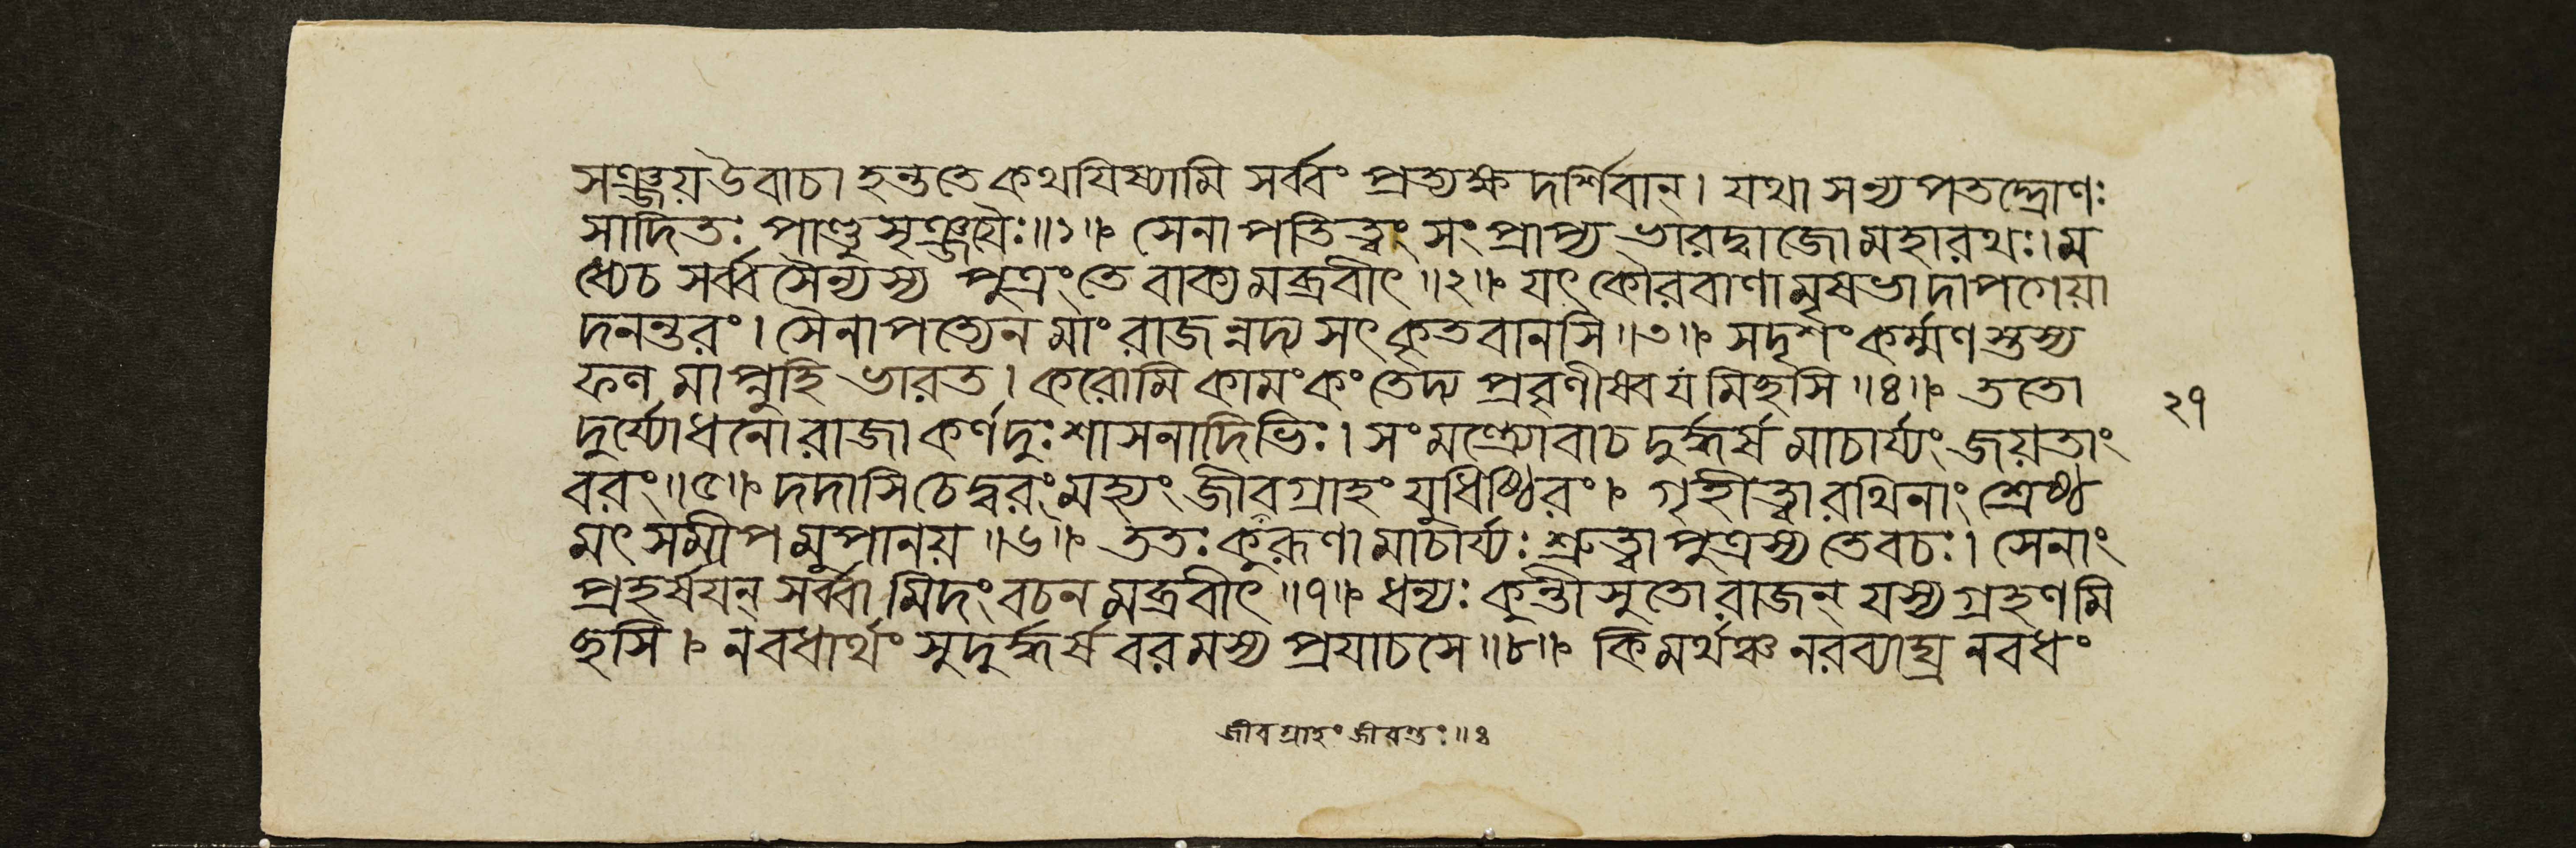 সঞ্জয়উবাচ। হন্ততে কথযিষ্যামি সর্ব্বং প্রত্যক্ষ দর্শিবান্। যথা সন্যপতদ্দ্রোণঃ
সাদিতঃ পাণ্ডুসৃঞ্জয়ৈঃ॥১॥ সেনাপতিত্বং সংপ্রাপ্য ভারদ্বাজো মহারথঃ। ম
ধ্যেচ সর্ব্ব সৈন্যস্য পুত্রং তে বাক্য মব্রবীৎ॥২॥ যৎ কৌরবাণামৃষভাদাপগেয়া
দনন্তরং। সৈনাপত্যেন মাং রাজন্নদ্য সৎকৃতবানসি॥৩॥ সদৃশং কর্ম্মণস্তস্য
ফল মাপ্নুহি ভারত। করোমি কামং কং তেদ্য প্রবৃণীষ্ব যমিছসি॥৪॥ ততো
২৭
দুর্য্যোধনো রাজা কর্ণদুঃশাসনাদিভিঃ। সংমন্ত্র্যোবাচ দুর্দ্ধর্ষ মাচার্য্যং জয়তাং
বরং॥৫॥ দদাসি চেদ্বরং মহ্যং জীবগ্রাহং যুধিষ্ঠিরং। গৃহীত্বা রথিনাং শ্রেষ্ঠ
মৎ সমীপ মুপানয়॥৬॥ ততঃ কুরূণা মাচার্য্যঃ শ্রুত্বা পুত্রস্য তে বচঃ। সেনাং
প্রহর্ষযন্ সর্ব্বামিদং বচন মব্রবীৎ॥৭॥ ধন্যঃ কুন্তীসুতো রাজন্ যস্য গ্রহণমি
ছসি। নবধার্থং সুদুর্দ্ধর্ষ বরমস্য প্রযাচসে॥৮॥ কিমর্থঞ্চ নরব্যাঘ্র নবধং
জীবগ্রাহং জীবন্তং॥৪